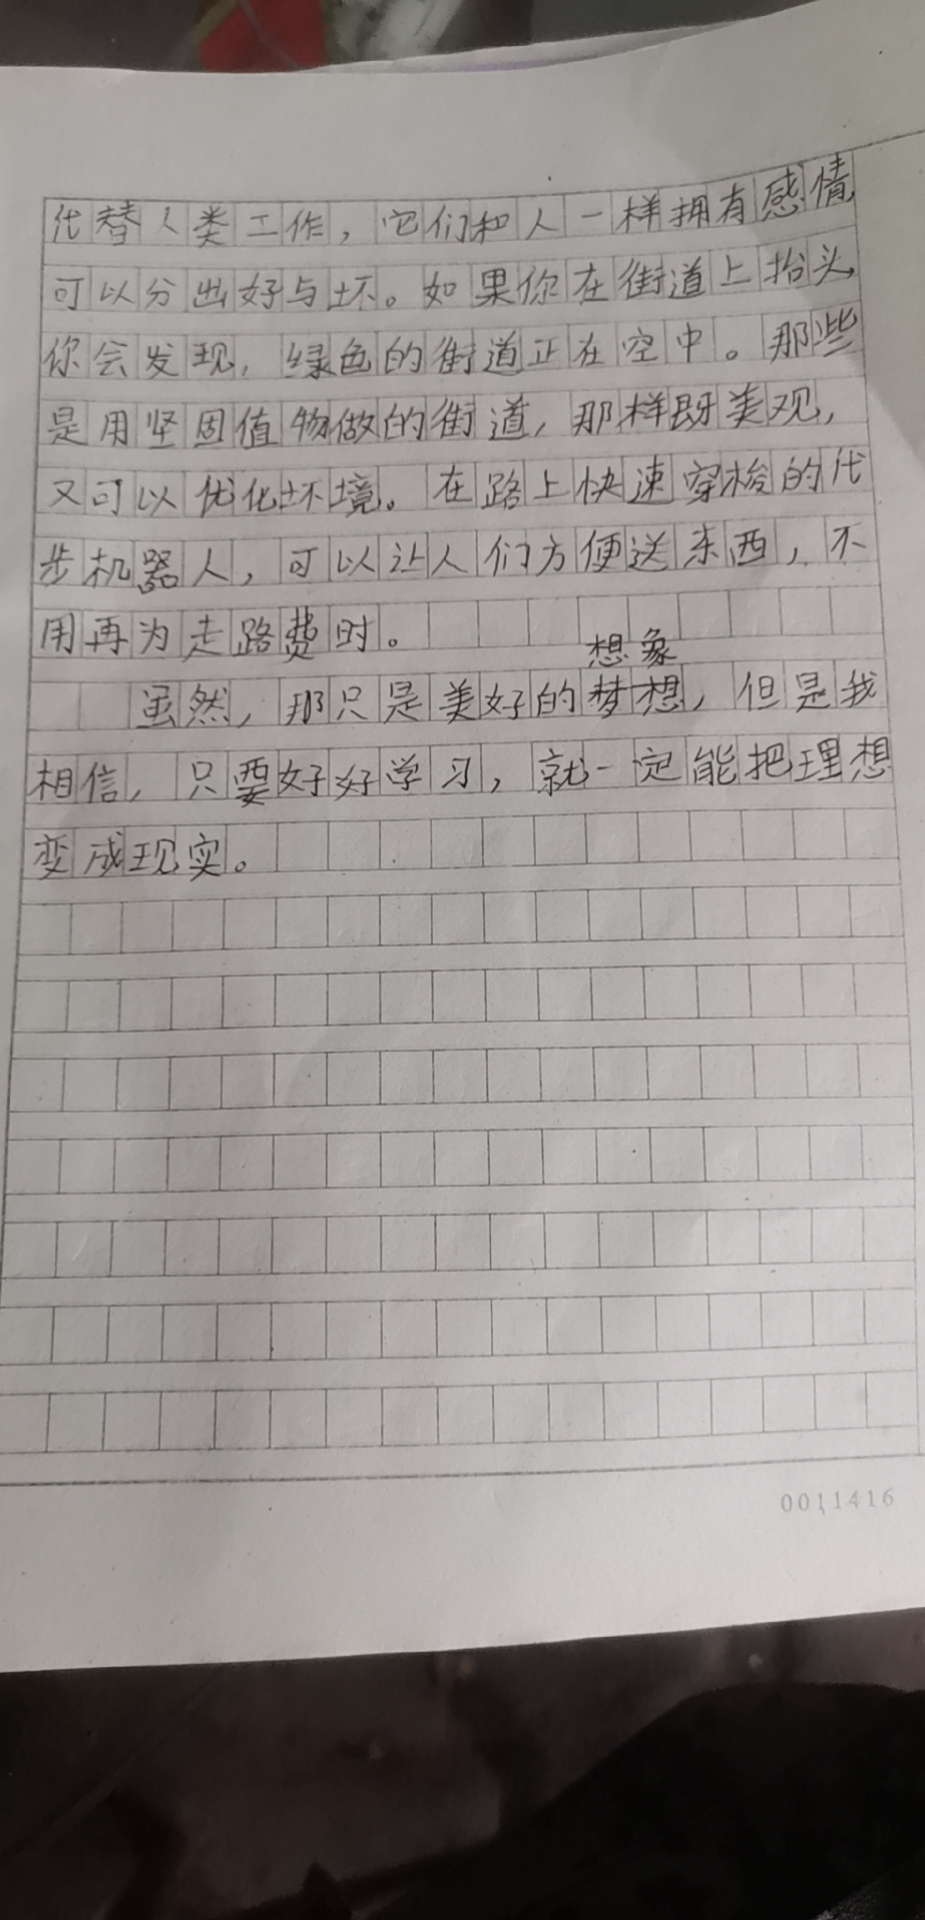 代替人类工作，它们和人一样拥有感情，
可以分出好与坏。如果你在街道上抬头，
你会发现，绿色的街道正在空中。那些
是用坚固值物做的街道，那样既美观，
又可以优化坏境。在路上快速穿梭的代
步机器人，可以让人们方便送东西，不
用再为走路费时。
想象
虽然，那只是美好的梦想，但是我
相信，只要好好学习，就一定能把理想
变成现实。
0011416